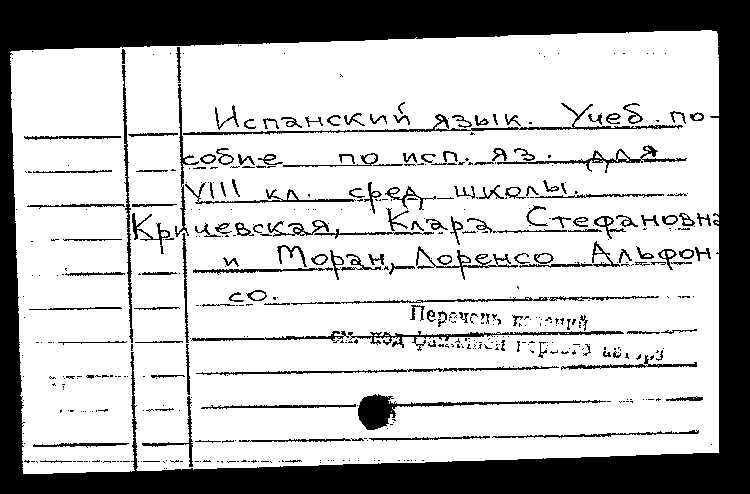 Испанский язык. Учеб. по-
собие по исп. яз. для
VIII кл. сред. школы.
Кричевская, Клара Стефановна
и Моран, Лоренсо Альфон-
со.
Перечень изданий
см. под фамилией первого автора